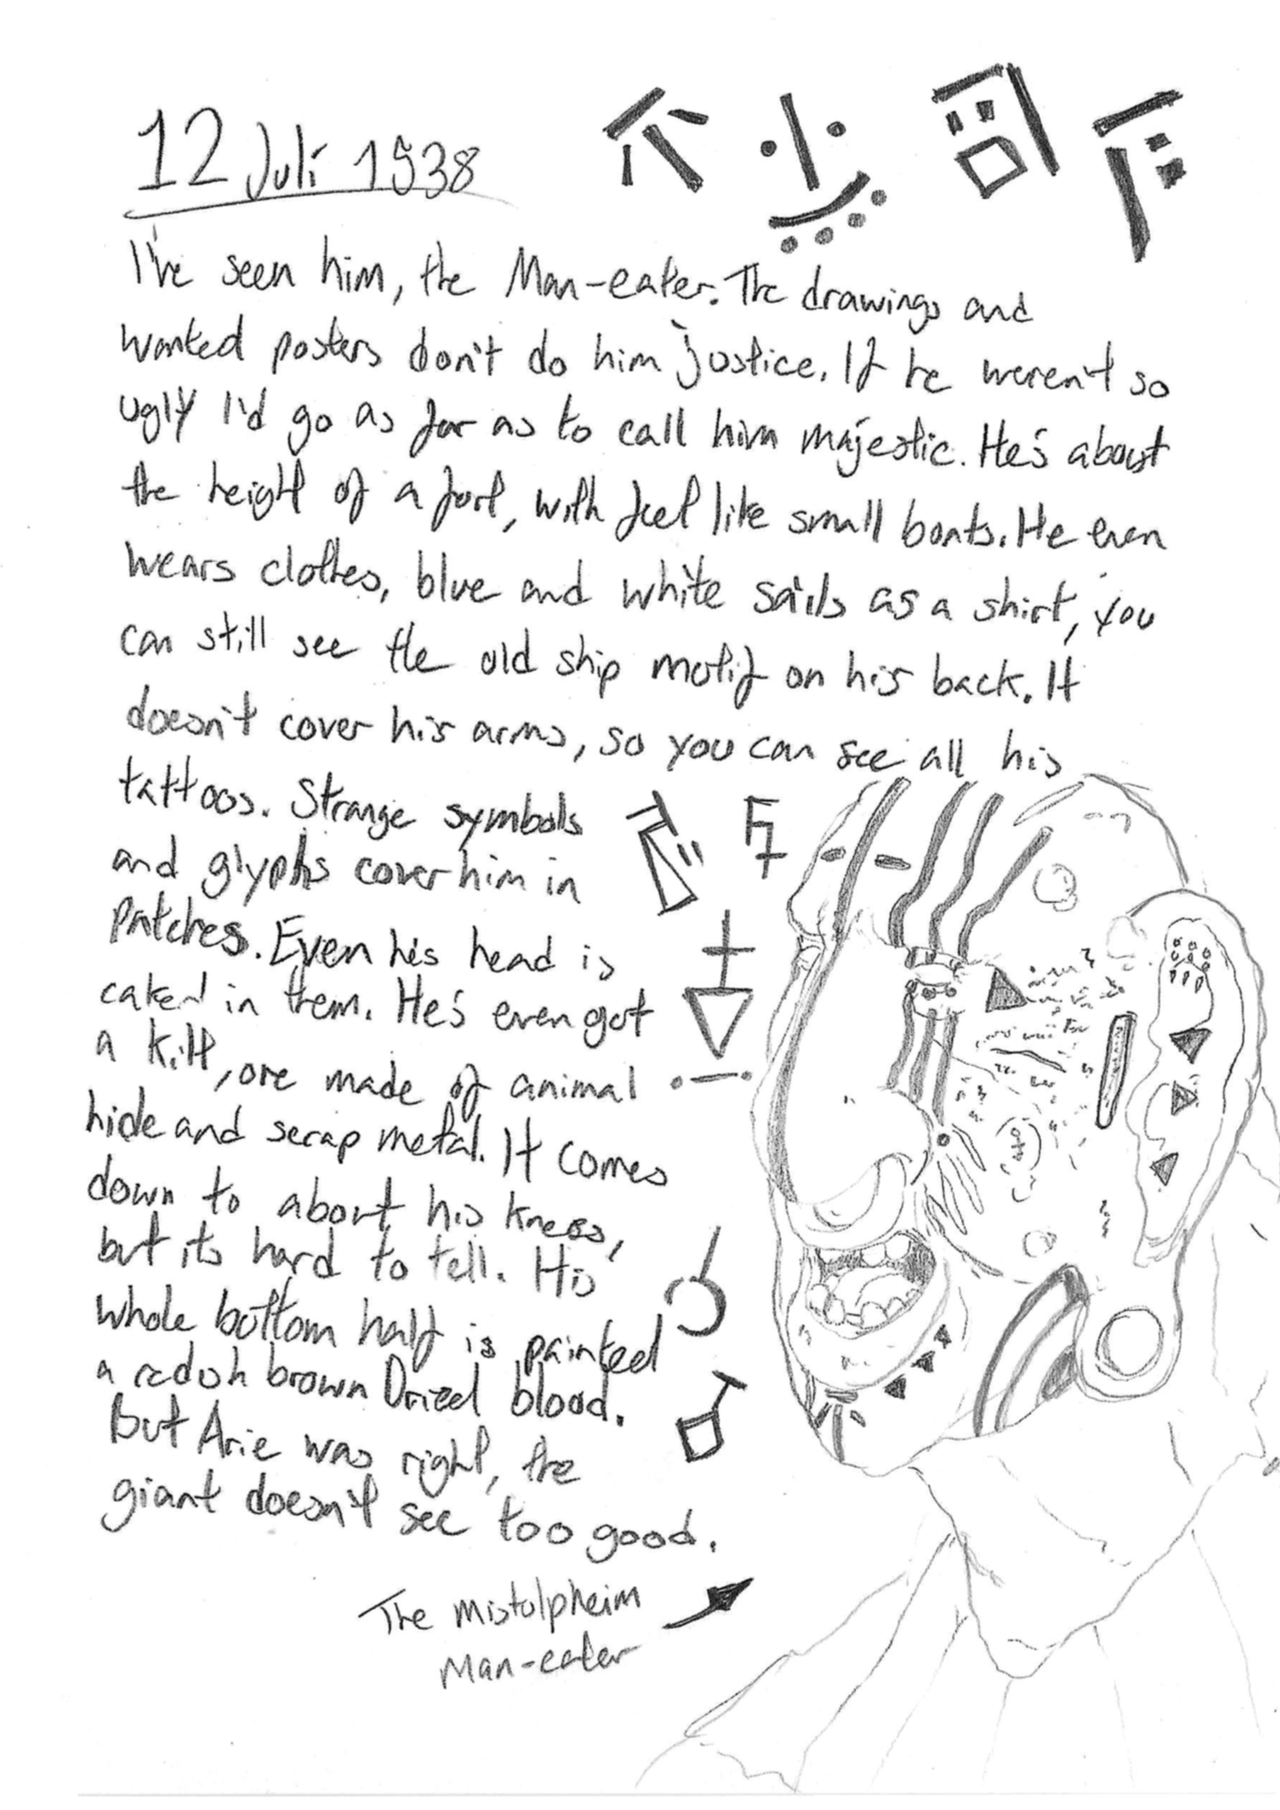 12 Juli 1938
I've seen him, the Man-eater. The drawings and
wanted posters don't do him justice. If he weren't so
ugly I'd go as far as to call him majestic. He's about
the height of a fort, with feet like small boats. He even
wears clothes, blue and white sails as a shirt, you
can still see the old ship motif on his back. It
doesn't cover his arms, so you can see all his
tattoos. Strange symbols
and glyphs cover him in
patches. Even his head is
caked in them. He's even got
a kilt, one made of animal
hide and scrap metal. It comes
down to about his knees,
but its hard to tell. His
whole bottom half is painted
a redish brown Dried blood.
But Arie was right, the
giant doesn't see too good.
The Mistolpheim
Man-eater